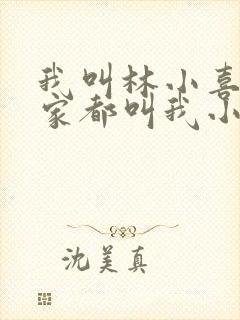 我叫林小喜
家都叫我小
沈美真